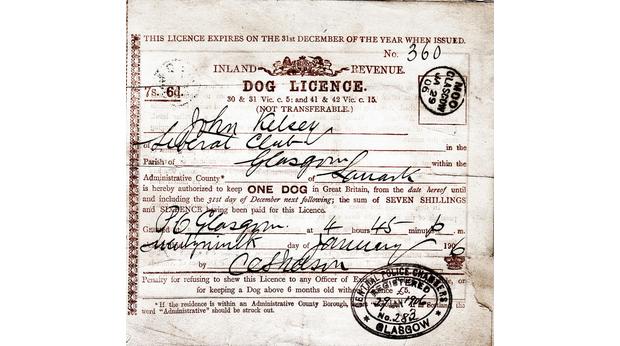 THIS LICENCE EXPIRES ON THE 31st DECEMBER OF THE YEAR WHEN ISSUED.
No. 360
INLAND REVENUE.
7s. 6d.
DOG LICENCE.
30 & 31 Vic. c. 5; and 41 & 42 Vic. c. 15.
(NOT TRANSFERABLE.)
GLASGOW
JA 29
06
John Kelsey
of Liberal Club in the
Parish of Glasgow within the
Administrative County* of Lanark
is hereby authorized to keep ONE DOG in Great Britain, from the date hereof until
and including the 31st day of December next following; the sum of SEVEN SHILLINGS
and SIXPENCE having been paid for this Licence.
Granted at P.O. Glasgow. at 4 hours 45 minutes p.
twentyninth day of January 1906
by
Penalty for refusing to shew this Licence to any Officer of
for keeping a Dog above 6 months old without Licence £5.
* If the residence is within an Administrative County Borough, in Scotland, the
word "Administrative" should be struck out.
CENTRAL POLICE CHAMBERS
REGISTERED
29 JAN 1906
No. 283
GLASGOW